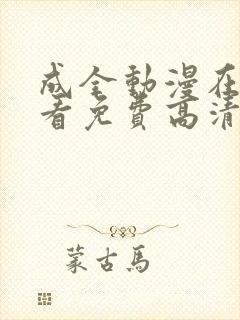 成全動漫在
看免費高清
蒙古馬